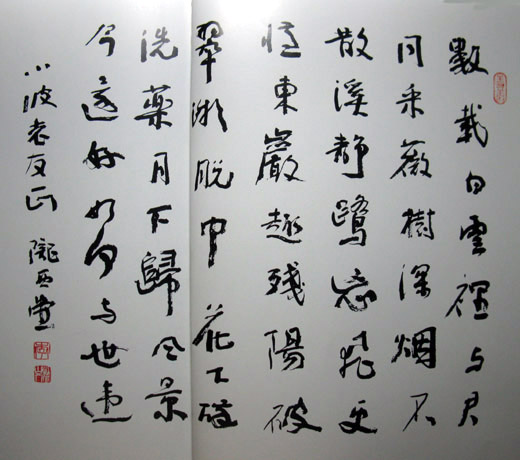 數載白雲裡与君
同采薇樹深烟不
散溪靜鷺忘飛更
憶東巖趣殘陽破
翠微脫巾花下醉
洗藥月下歸风景
今還好如何与世違
小波老友正 隴西堂